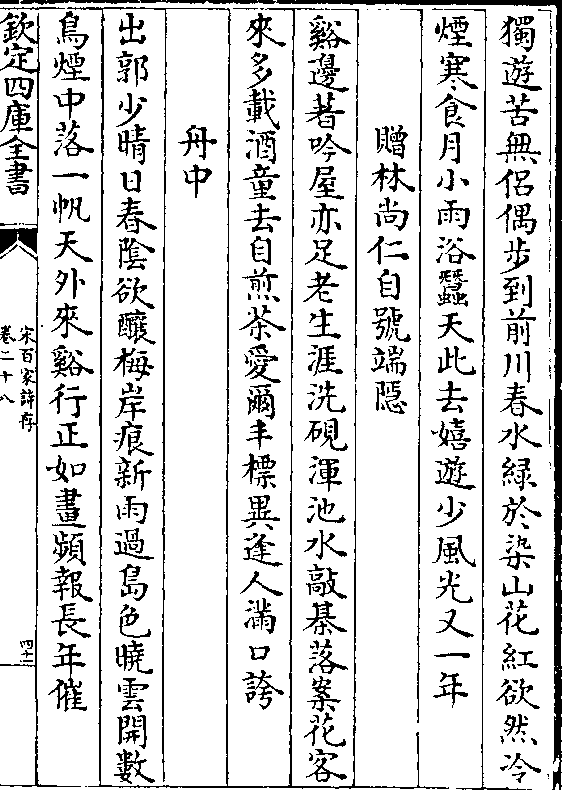 獨遊苦無侶偶步到前川春水緑於染山花紅欲然冷
煙寒食月小雨浴蠶天此去嬉遊少風光又一年
贈林尚仁自號端隱
谿邊著吟屋亦足老生涯洗硯渾池水敲棊落案花客
來多載酒童去自煎茶愛爾丰標異逢人滿口誇
舟中
出郭少晴日春陰欲釀梅岸痕新雨過島色曉雲開數
鳥煙中落一帆天外來谿行正如畫頻報長年催
欽定四庫全書
宋百家詩存
卷二十八
四十二